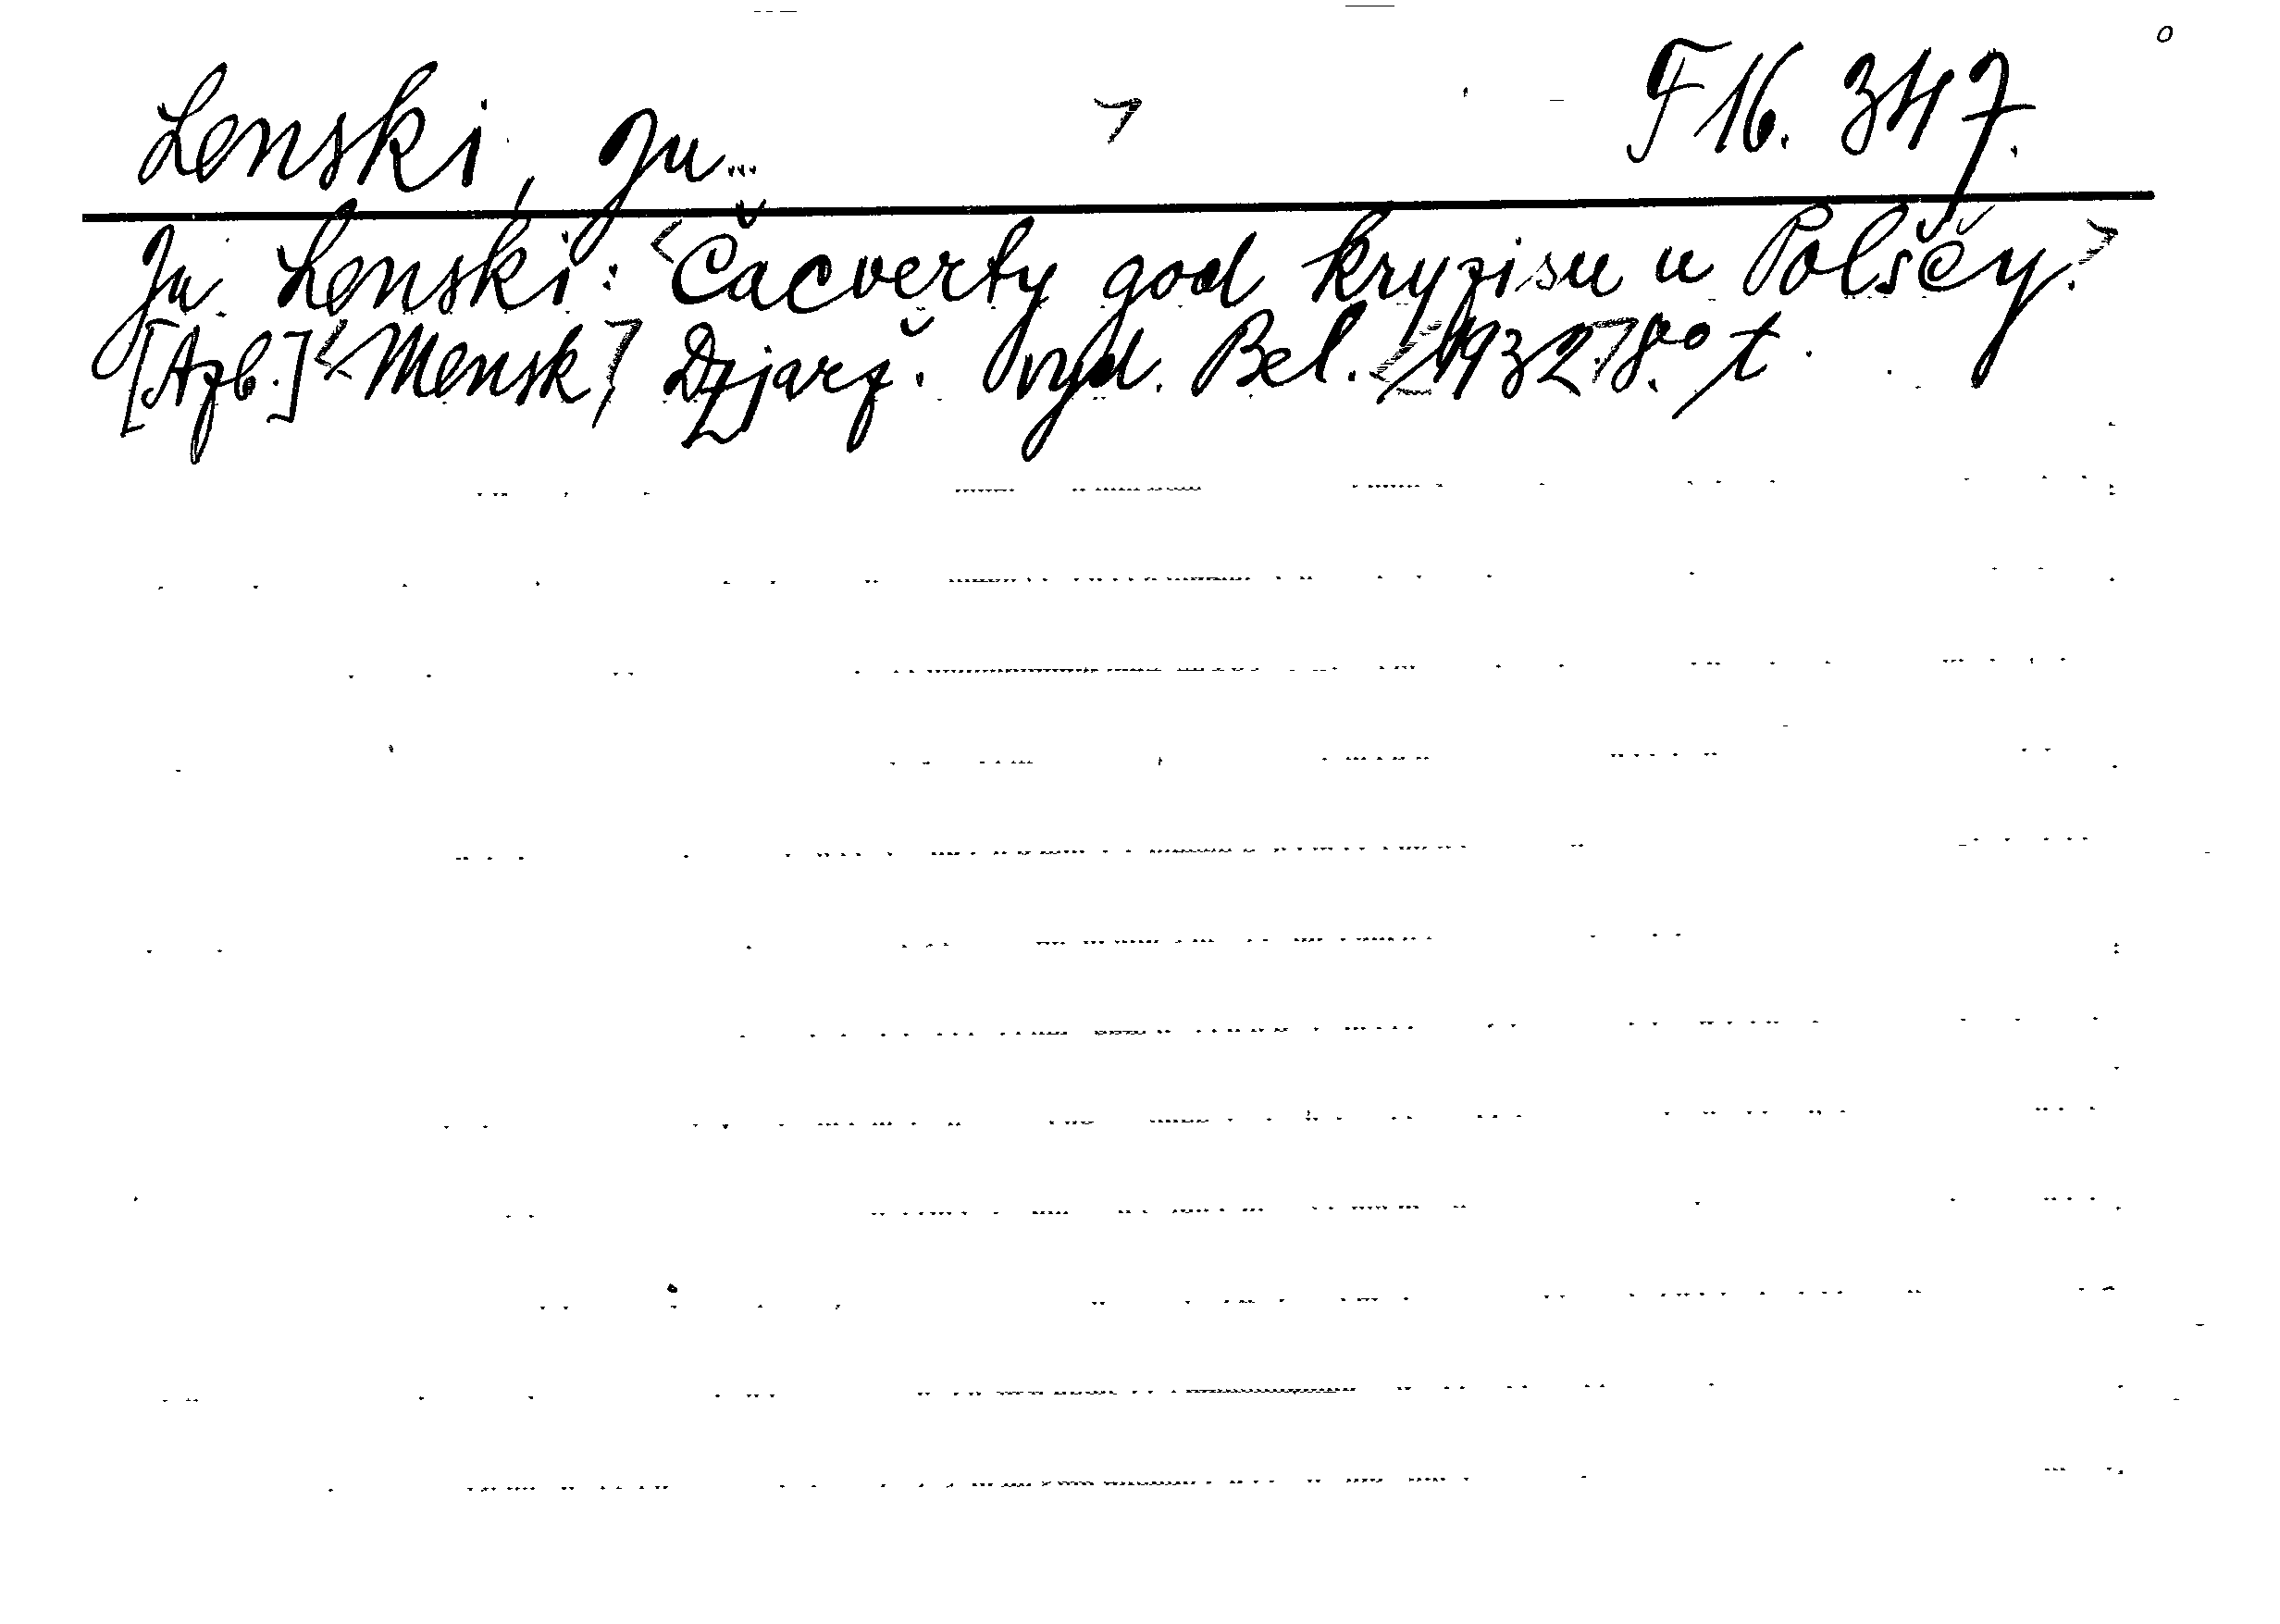 Lenski, Ju... > F 16. 347.
Ju. Lenski: <Čacverty god kryzisu u Polščy.>
[Azb.] <Mensk,> Dzjarž. vyd. Bel. <1932.> 8.° t.